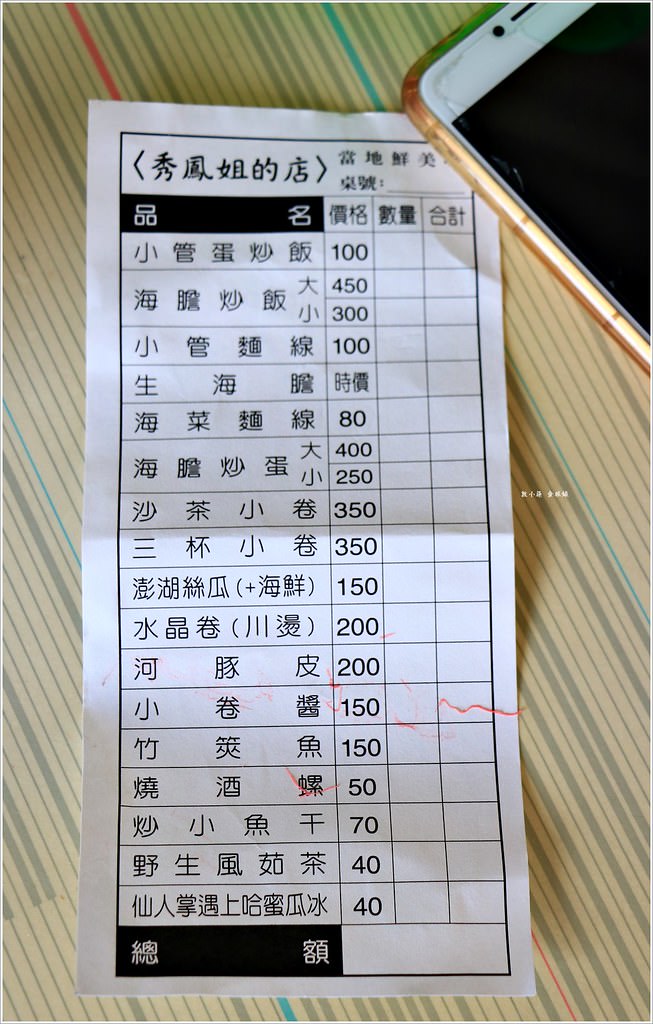 〈秀鳳姐的店〉 當地鮮美
桌號:
品名 價格 數量 合計
小管蛋炒飯 100
海膽炒飯 大 450
小 300
小管麵線 100
生海膽 時價
海菜麵線 80
海膽炒蛋 大 400
小 250
沙茶小卷 350
三杯小卷 350
澎湖絲瓜(+海鮮) 150
水晶卷(川燙) 200
河豚皮 200
小卷醬 150
竹筴魚 150
燒酒螺 50
炒小魚干 70
野生風茹茶 40
仙人掌遇上哈蜜瓜冰 40
總額